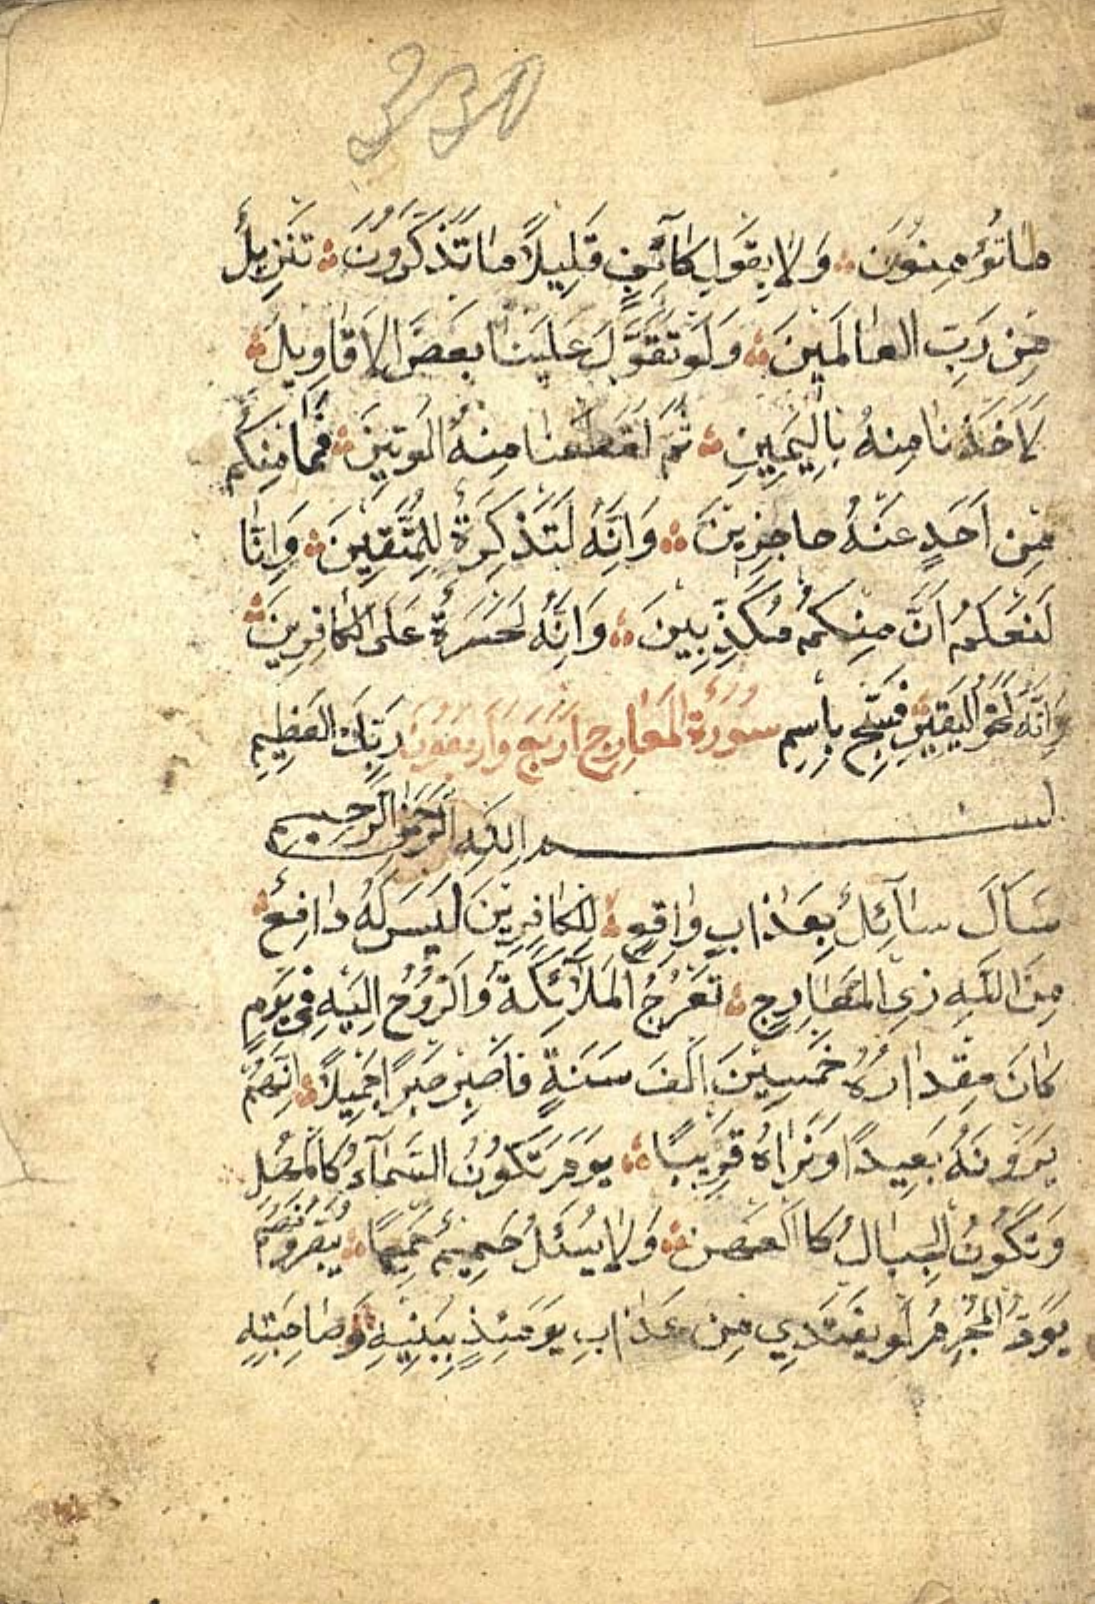 330
ماتُؤمِنُونَ وَلاٰ بِقَوَلِ كَاهِنٍ قَلِيلاً مٰا تَذَكَّرُونَ تَنزِيلٌ
مِن رَبِ العٰالَمِينَ وَلَو تَقَوَّلَ عَلَينٰا بَعضَ الاَقٰاوِيلَ
لَاَخَذنٰا مِنهُ بِاليَمِينِ ثُمَّ لَقَطَعنٰا مِنهُ الوَتِينَ فَمٰا مِنكُم
مِن اَحَدٍ عَنهُ حاجِزِينَ وَاِنَّهُ لَتَذكِرَةٌ لِلمُتَّقِينَ وَاِنّٰا
لَنَعلَمُ اَنَّ مِنكُم مُكَذِّبِينَ وَاِنَّهُ لَحَسرَةٌ عَلَى الكٰافِرِينَ
وَاِنَّهُ لَحَقُّ اليَقِينِ فَسَبِّح بِاسِمِ سُورَةُ المَعٰارِج اَربَع وَاَربَعُونَ رَبِّكَ العَظِيمِ
بسم اللَّهِ الرَّحمٰنِ الرَّحِيمِ
سَاَلَ سٰآئِلٌ بِعَذٰابٍ وٰاقِعٍ لِلكٰافِرِينَ لَيسَ لَهُ دٰافِعٌ
مِنَ اللَّهِ ذِي المَعٰارِجِ تَعرُجُ المَلآئِكَةُ وَالرُّوُحُ اِلَيهِ فِي يَومٍ
كانَ مِقدٰارُهُ خَمسِينَ اَلفَ سَنَةٍ فَاصبِر صَبرًا جَمِيلاً اِنَّهُم
يَرَونَهُ بَعِيدًا وَنَرٰاهُ قَرِيبًا يَومَ تَكُونُ السَّمٰآءُ كَالمُهلِ
وَتَكُونُ الجِبٰالُ كَاالعِهنِ وَلاٰ يَسئَلُ حَمِيمٌ حَمِيمًا يُبَصَّرُونَهُم
يَوَدُّ المُجرِمُ لَو يَفتَدِي مِن عَذٰابِ يَومَئِذٍ بِبَنِيهِ وَصٰاحِبَتِهِ